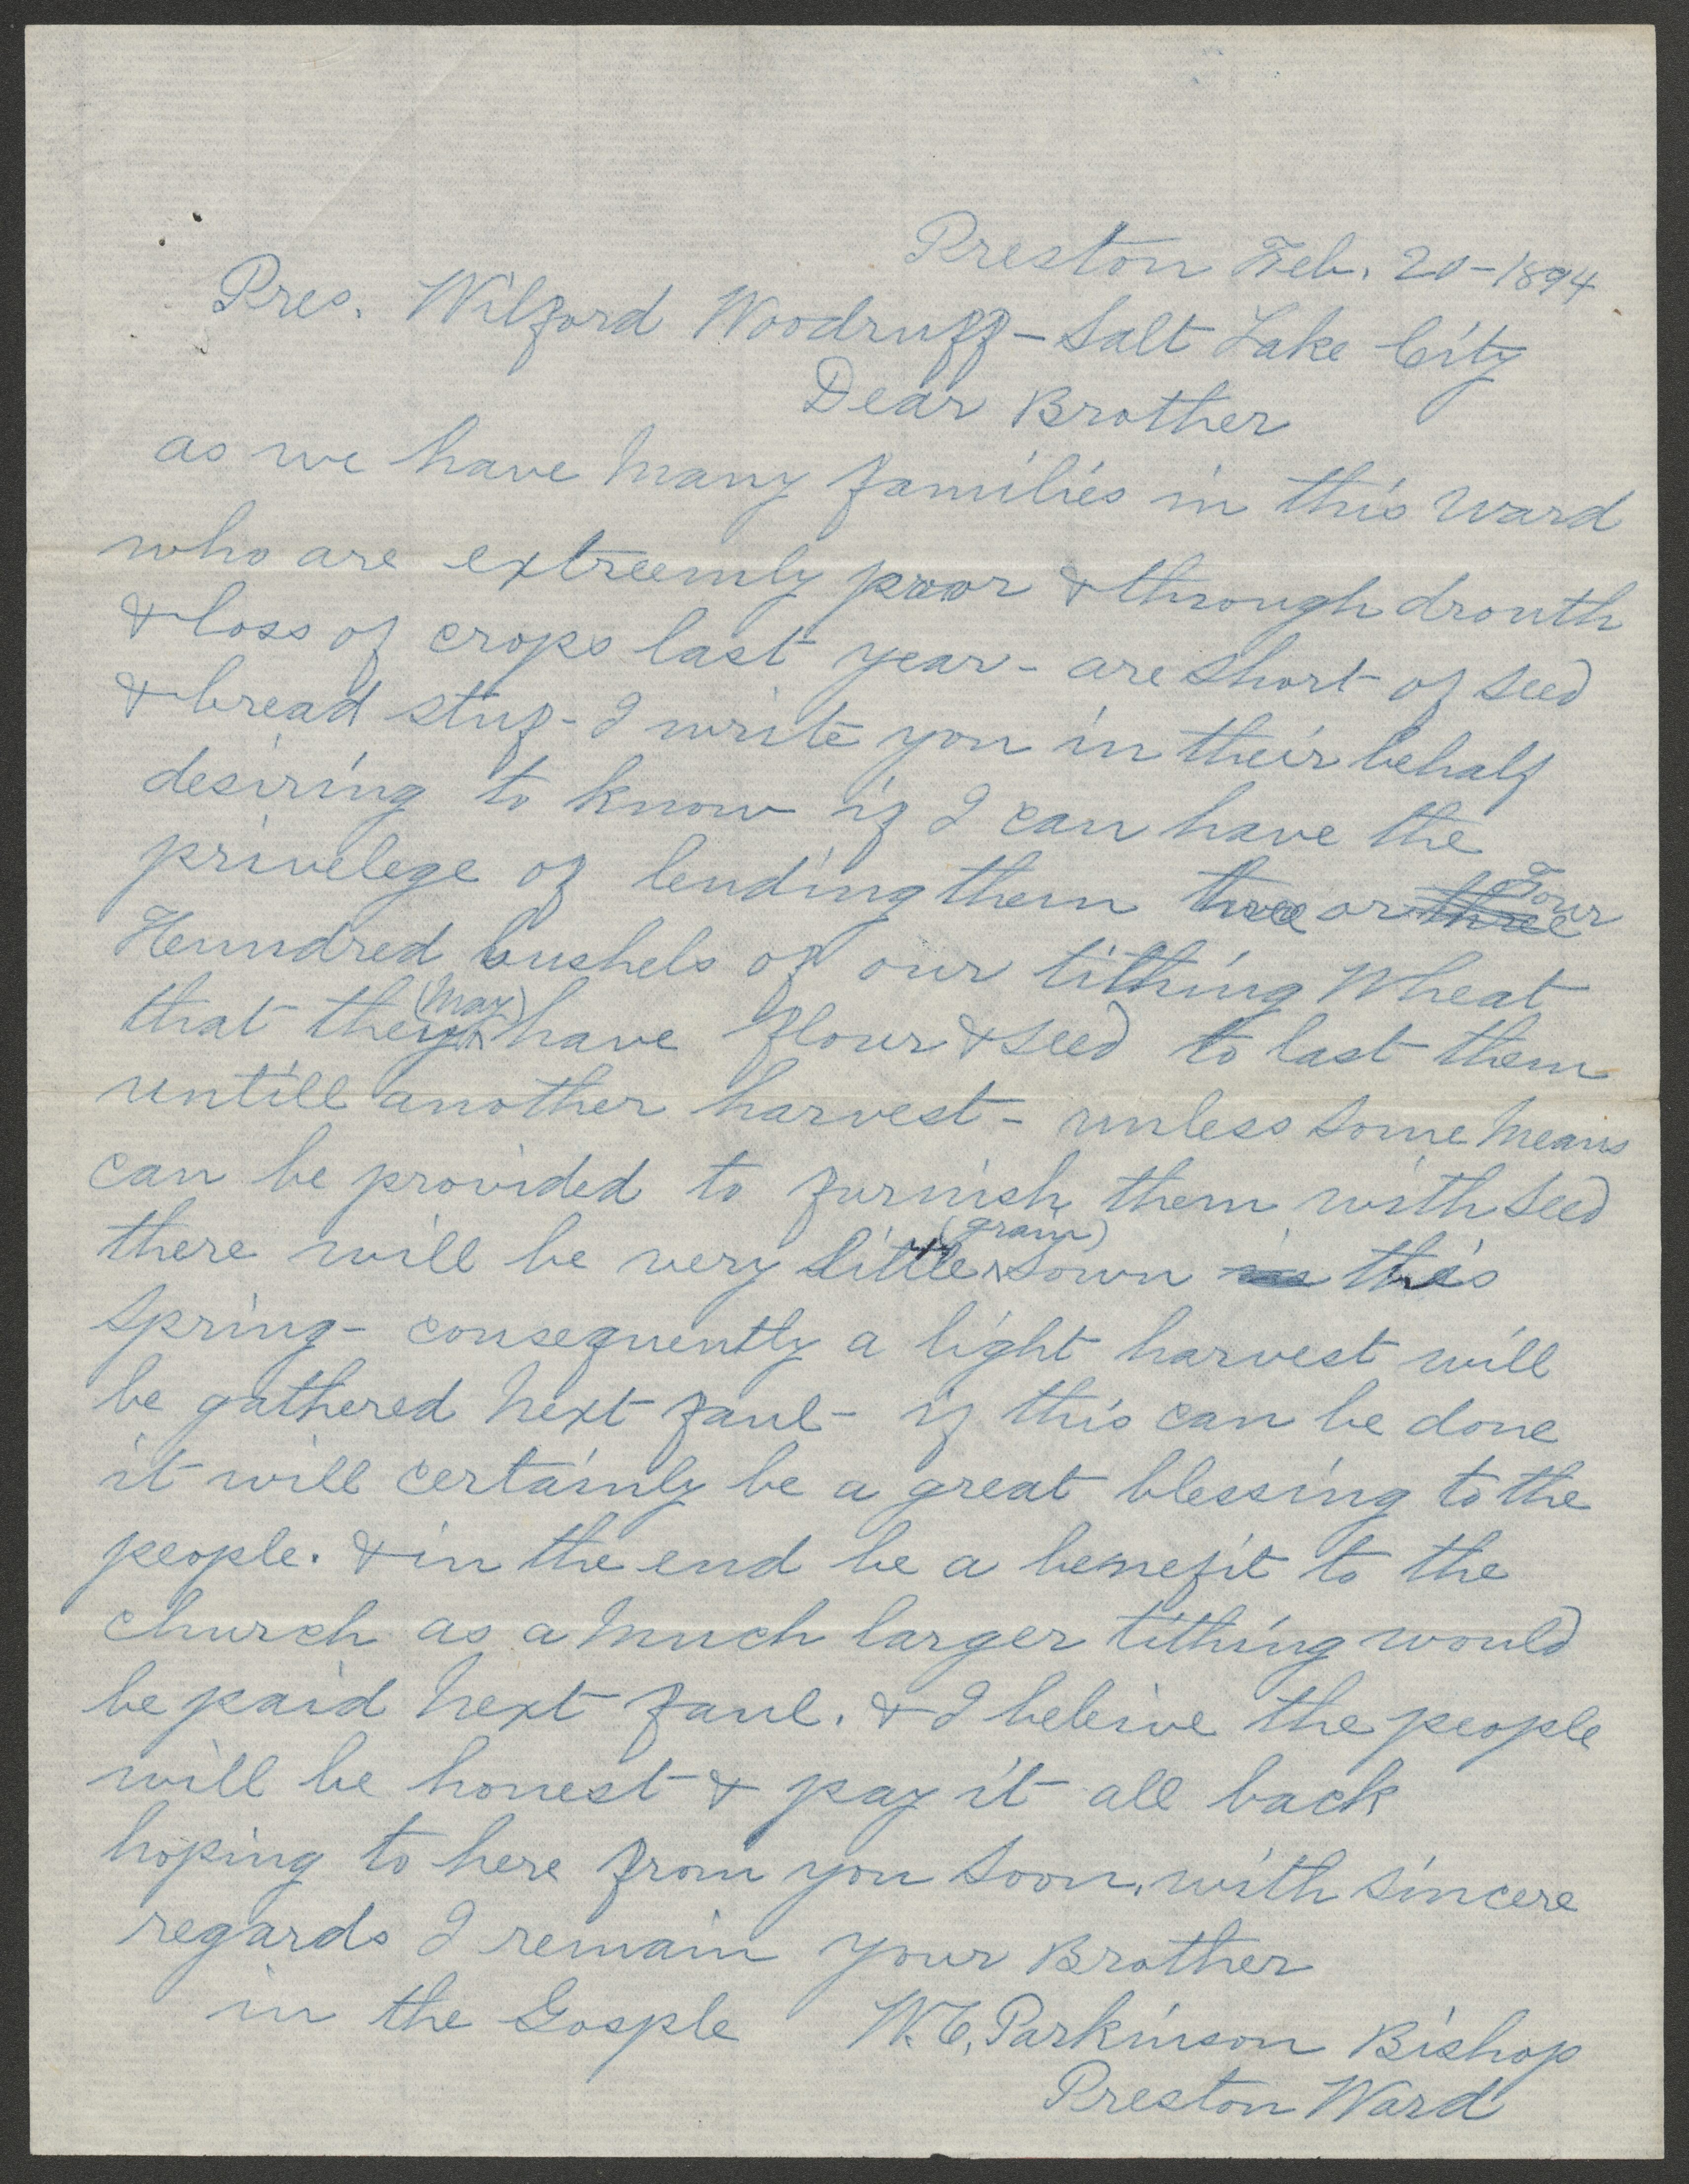 Preston Feb. 20-1894
Pres. Wilford Woodruff - Salt Lake City
Dear Brother
as we have many families in this ward
who are extreemly poor & through drouth
& loss of crops last year - are short of seed
& bread stuf - I write you in their behalf
desiring to know if I can have the
privelege of lending them three or three Four
Hundred bushels of our tithing Wheat
that they (may) have flour & seed to last them
untill another harvest - unless some means
can be provided to furnish them with seed
there will be very little (grain) sown in this
spring - consequently a light harvest will
be gathered next faul - if this can be done
it will certainly be a great blessing to the
people. & in the end be a benefit to the
church as a much larger tithing would
be paid next faul. & I beleive the people
will be honest & pay it all back
hoping to here from you soon. with sincere
regards I remain your Brother
in the Gosple W. C. Parkinson Bishop
Preston Ward